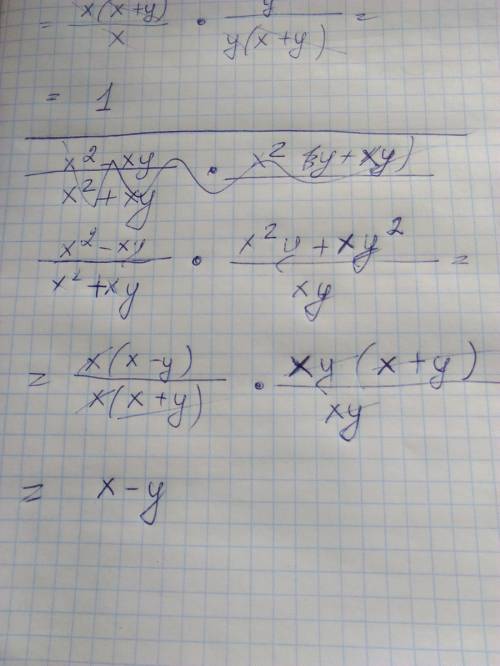 = x(x+y)/x · y/y(x+y) =
= 1
x² - xy / x² + xy · x²
x² - xy / x² + xy · x²y + xy² / xy =
= x(x-y) / x(x+y) · xy(x+y) / xy
= x - y